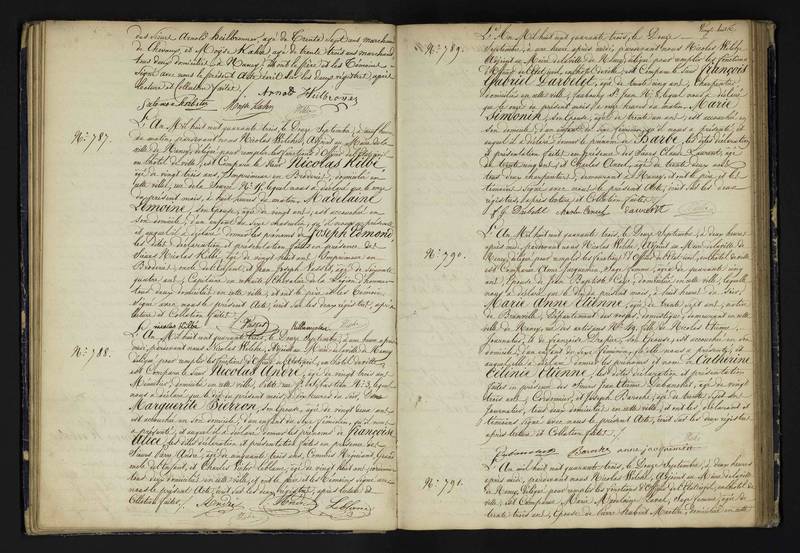 des Sieurs Arnold Heilbronner, agé de trente sept ans marchand
de Chevaux, et Moyse Kahn, agé de trente trois ans marchand
tous deux domiciliés à Nancy; et ont le père et les témoins
signé avec nous le présent acte, écrit sur les deux registres, après
lecture et Collation faites.
Arnold Heilbronner
Moyse Kahn
N.° 787.
L'An Mil huit cent quarante trois, le Douze Septembre, à neuf heures
du matin, pardevant nous Nicolas Welche, Adjoint au Maire de la
ville de Nancy, délégué pour remplir les fonctions d'Officier de l'état civil,
en l'hotel de ville, est Comparu le Sieur Nicolas Hilbé,
agé de vingt trois ans, Imprimeur en Broderie, domicilié en
cette ville, lequel nous a déclaré que le onze
du présent mois, à huit heures du matin, Madelaine
Lemoine, son Epouse, agée de vingt ans, est accouchée en
son domicile, d'un enfant du Sexe masculin, qu'il nous a présenté,
et auquel il a déclaré donner les prénoms de Joseph Edmond,
les dites déclaration et présentation faites en présence des
Sieurs Nicolas Hilbé, agé de vingt huit ans, Imprimeur en
Broderie, oncle de l'enfant, et Jean Joseph Vasset, agé de soixante
quatre ans, Capitaine en retraite, Chevalier de la Légion d'honneur
tous deux domiciliés en cette ville, et ont le père et les témoins
signé avec nous le présent Acte, écrit sur les deux registres, après
lecture et Collation faites.
nicolas hilbé
N.° 788.
L'An Mil huit cent quarante trois, le Douze Septembre, à une heure après
midi, pardevant nous Nicolas Welche, Adjoint au Maire de la ville de Nancy
délégué pour remplir les fonctions d'Officier de l'état civil, en l'hotel de ville
est Comparu le Sieur Nicolas André, agé de vingt trois ans,
Menuisier, domicilié en cette ville, N.° 3, lequel
nous a déclaré que le dix du présent mois, à dix heures du soir,
Marguerite Pierron, son Epouse, agée de vingt deux ans
est accouchée en son domicile, d'un enfant du Sexe féminin, qu'il nous
a présenté, et auquel il a déclaré donner les prénoms de Françoise
Alice, les dites déclaration et présentation faites en présence des
Sieurs André, agé de cinquante trois ans,
de l'enfant, et Charles Leblanc, agé de vingt huit ans,
tous deux domiciliés en cette ville, et ont le père et les témoins signé avec
nous le présent Acte, écrit sur les deux registres, après lecture et
Collation faites.
André
Leblanc
N.° 789.
L'An Mil huit cent quarante trois, le Douze
Septembre, à une heure après midi, pardevant nous Nicolas Welche
Adjoint au Maire de la ville de Nancy, délégué pour remplir les fonctions
d'Officier de l'état civil, en l'hotel de ville, est Comparu le Sieur François
Gabriel Darbilot, agé de trente cinq ans, Charpentier,
domicilié en cette ville, lequel nous a déclaré
que le onze du présent mois, à onze heures du matin, Marie
Simonin, son Epouse, agée de trente un ans, est accouchée en
son domicile, d'un enfant du Sexe féminin, qu'il nous a présenté, et
auquel il a déclaré donner le prénom de Barbe, les dites déclaration
et présentation faites en présence des Sieurs Laurent, agé
de trente cinq ans, et Charles Conel, agé de trente deux ans,
tous deux charpentiers, demeurant à Nancy, et ont le père et les
témoins signé avec nous le présent Acte, écrit sur les deux
registres, après lecture et Collation faites.
Laurent
N.° 790.
L'An Mil huit cent quarante trois, le Douze Septembre, à deux heures
après midi, pardevant nous Nicolas Welche, Adjoint au Maire de la ville de
Nancy, délégué pour remplir les fonctions d'Officier de l'état civil, en l'hotel de ville
est Comparue Anne Jacquemin, Sage femme, agée de quarante cinq
ans, Epouse de Jean Baptiste domiciliée en cette ville, laquelle
nous a déclaré que le dix du présent mois, à huit heures du soir,
Marie Anne Etienne, agée de trente sept ans, native
de Département des Vosges, domestique, demeurant en cette
ville de Nancy, rue des artisans N.° 49, fille de Nicolas Etienne,
Journalier, et de Françoise son Epouse, est accouchée en son
domicile, d'un enfant du Sexe féminin, qu'elle nous a présenté, et
auquel elle a déclaré donner les prénoms et nom de Catherine
Célinie Etienne, les dites déclaration et présentation
faites en présence des Sieurs Jean Etienne agé de vingt
trois ans, Cordonnier, et Joseph Baroche, agé de trente sept ans
Journalier, tous deux domiciliés en cette ville, et ont les déclarant et
témoins signé avec nous le présent Acte, écrit sur les deux registres
après lecture et Collation faites.
Baroche anne jacquemin
N.° 791.
L'An Mil huit cent quarante trois, le Douze Septembre, à deux heures
après midi, pardevant nous Nicolas Welche, Adjoint au Maire de la ville
de Nancy, délégué pour remplir les fonctions d'Officier de l'état civil, en l'hotel de
ville, est Comparue Marie Sage femme, agée de
trente trois ans, Epouse de Pierre Martin, domiciliée en cette